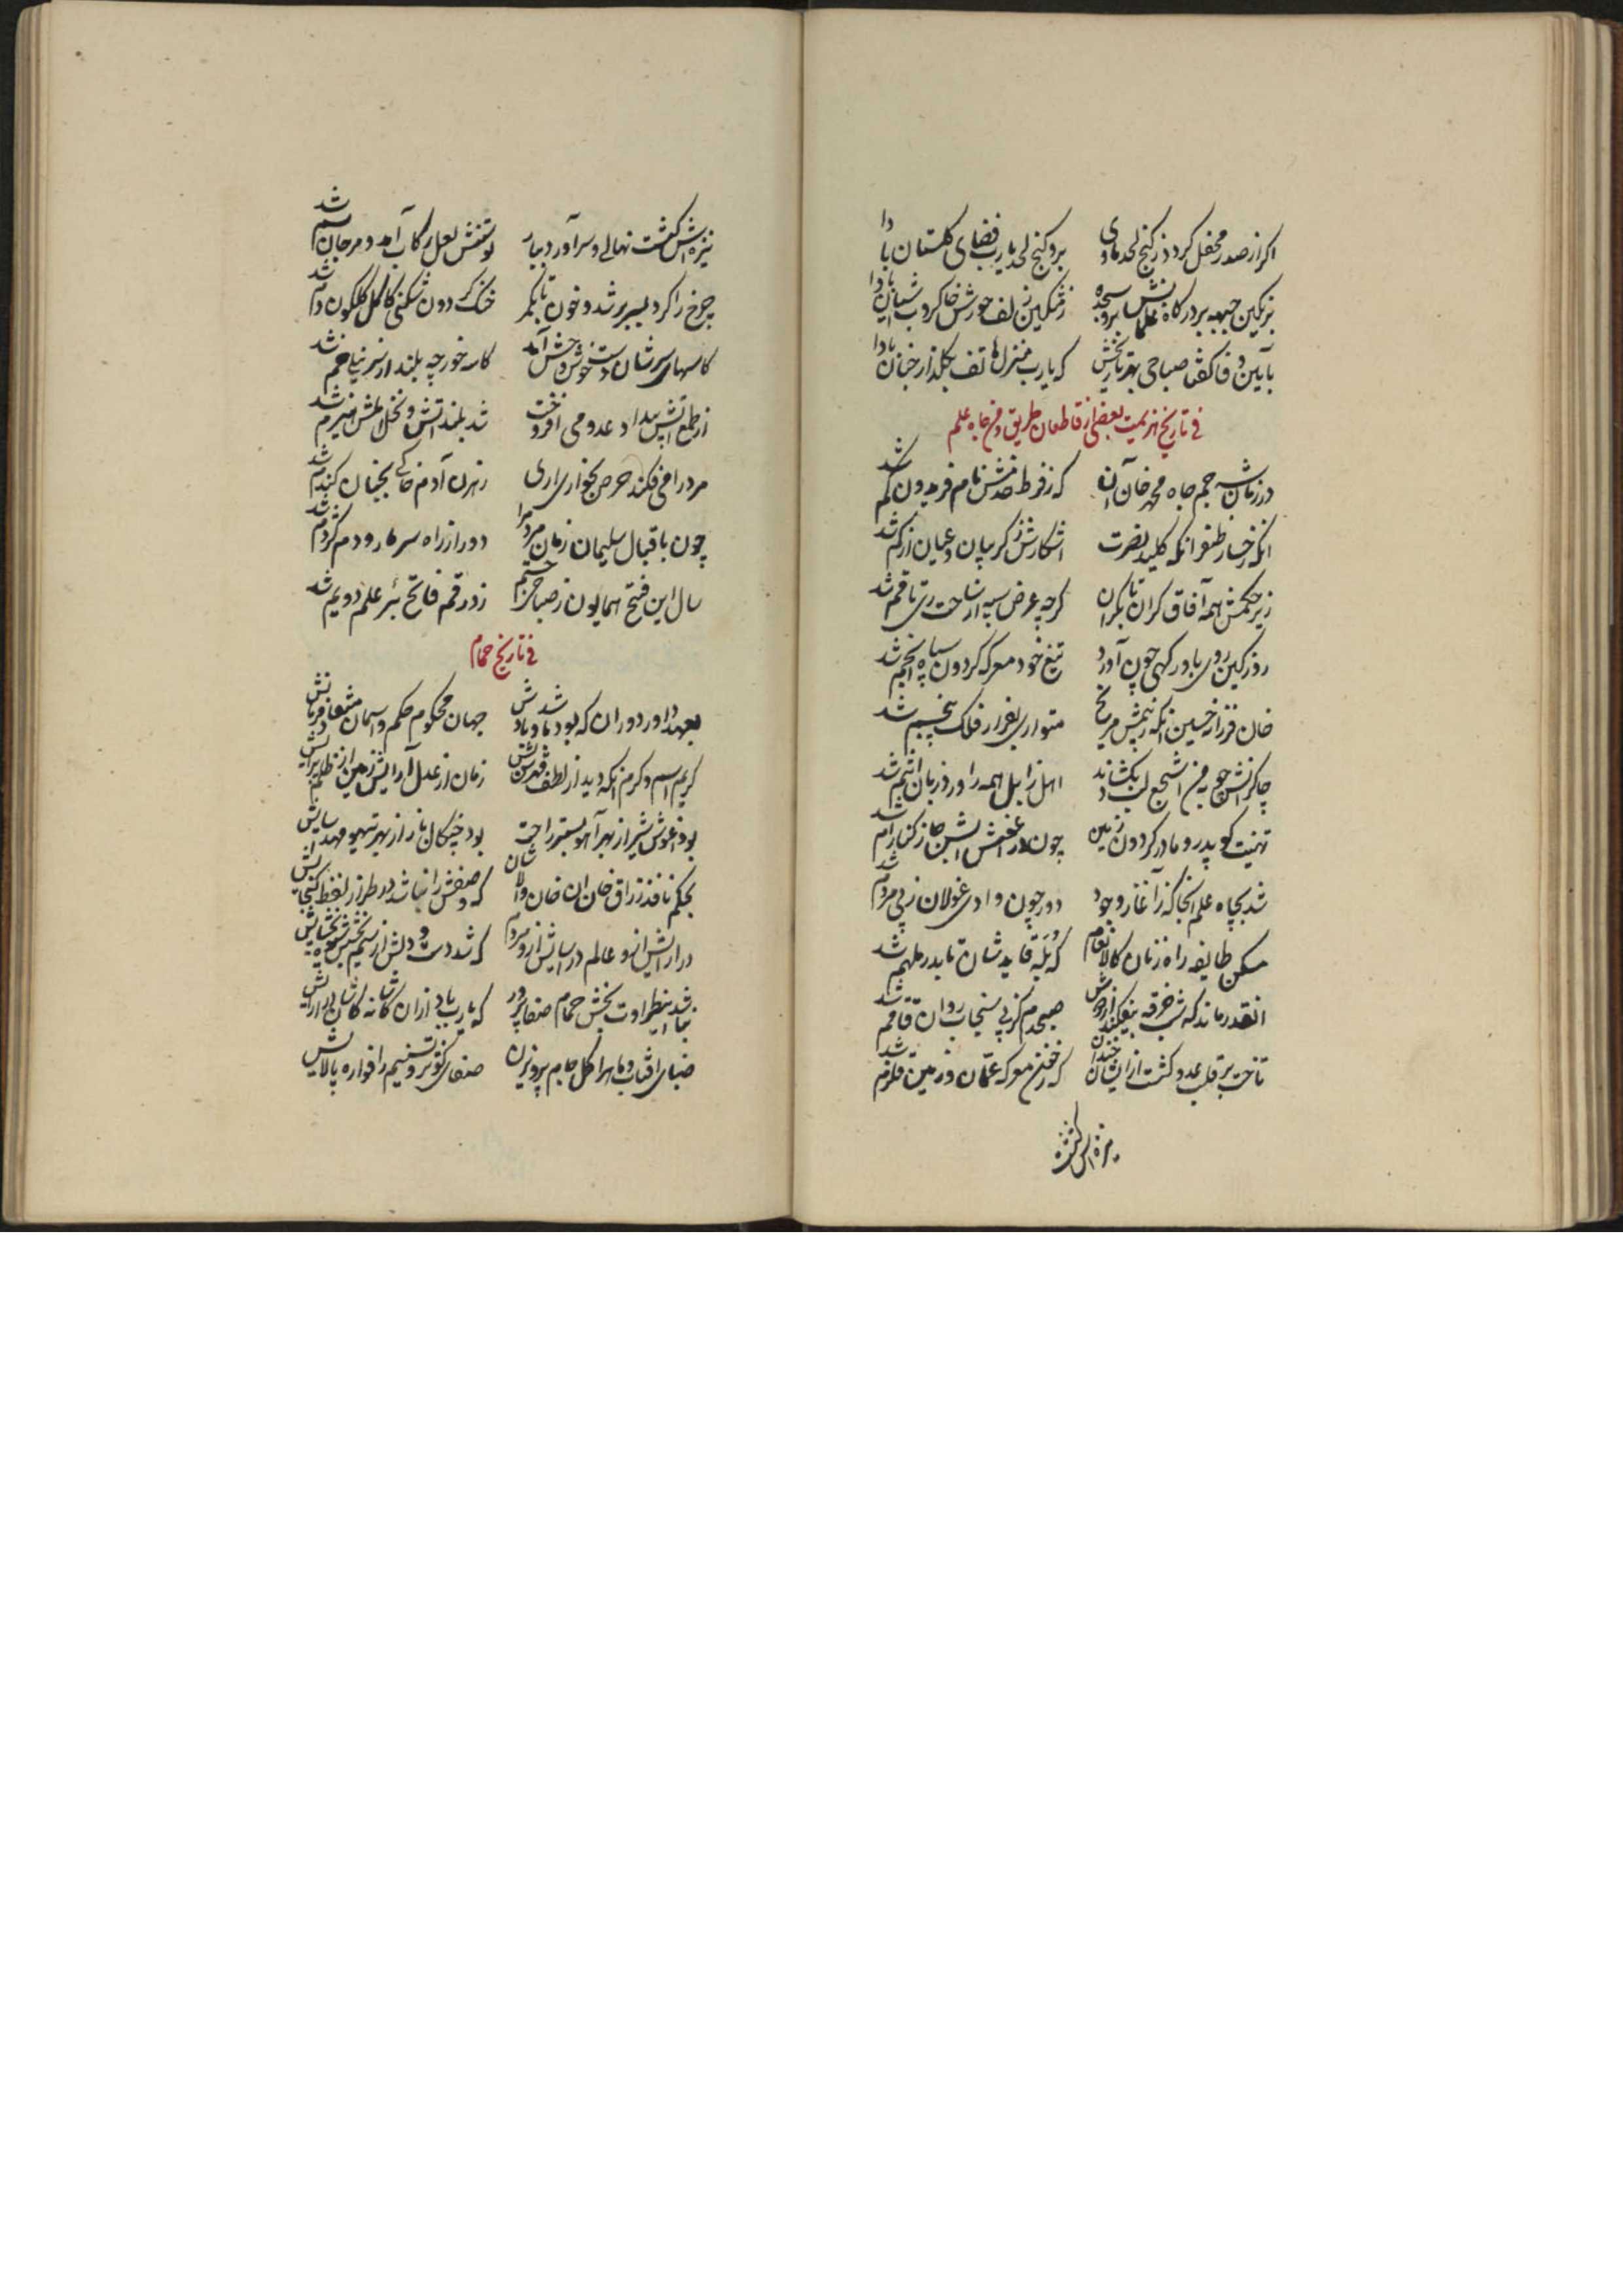 اگر از صدر محفل کرد در کنج لحد ماوی برو کنج لحد یارب فضای گلستان بادا
بزنگین جبهه بر درگاه سجده زمشکین زلف حورش خاکروب بادا
بآیین وفا گفتا صباحی بهر تاریخش که یارب منزل هاتف بگلزار جنان بادا
فی تاریخ هزیمت بعضی از قاطعان طریق و فتح چاه علم
در زمان شه جم جاه محمد خان آن که ز فرط خدمش نام فریدون گم شد
آنکه رخسار ظفر آنکه کلید نصرت آشکارش ز گریبان و عیان از کم شد
زیر حکمش همه آفاق کران تا بکران گرچه عرض سپه از ساحت ری تا قم شد
روز کین روی باورد گهی چون آورد تیغ خود معرکه گردون سپاه انجم شد
خان فرزاد حسین آنکه ز بیمش مریخ متواری بفرار فلک پنجم شد
چاکرانش چو پی اشجع لب بگشادند اهل زابل همه را ورد زبان انتم شد
تهنیت گو پدر و مادر گردون و زمین چون در آغوشش از کنار ام شد
شد بچاه علم آنجا که ز آغاز وجود دور چون وادی غولان ز پی مردم شد
مسکن طایفه راه زنان کالانعام که قایدشان تا بدر ملهم شد
آنقدر ماند که شب خرقه بیفکند از دوش صبحدم کز پی سنجاب روان قاقم شد
تاخت بر قلب عدو کشت از ایشان چندان که ز خون معرکه عمان و زمین قلزم شد
نیزه اش گشت
نیزه اش گشت نهالی و سر آورد ببار توسنش لعل رکاب آمد و مرجان سم شد
چرخ را گرد بسر بر شد و خون تا بکمر خنگ گردون گلگون دم شد
کاسهای سرشان دست خوش وحش آمد کاسه خور چه بلند از سر نیلی خم شد
از طمع آتش بیداد عدو می افروخت شد بلند آتش و نخل املش هیزم شد
مرد را می فکند حرص بخواری آری رهزن آدم خاکی بجنان گندم شد
چون باقبال سلیمان زمان مردم را دور از راه سر مار و دم کژدم شد
سال این فتح همایون ز صباحی جستم زد رقم فاتح بئر علم دویم شد
فی تاریخ حمام
بعهد داور دوران که بود و باد جهان محکوم حکم و آسمان منقاد فرمانش
کریم اسم و کرم آنکه دید از لطف و قهرش زمان از عدل آرایش زمین از ظلم
بود آغوش شیر از بهر آهو بستر راحت بود چنگال باز از بهر تیهو مهد آسایش
بحکم نافذ رزاق خان آن خان والا شان که وصفش را نباشد در طراز لفظ گنجایش
در آرایش از او عالم در آسایش از او مردم که شد دست و دلش از
بنا شد طراوت بخش حمام صفا پرور که یارب باد از آن کاشانه کاشان در آرایش
ضیای آفتاب و ماه را گل جام پرویزن صفای کوثر و تسنیم را فواره پالایش